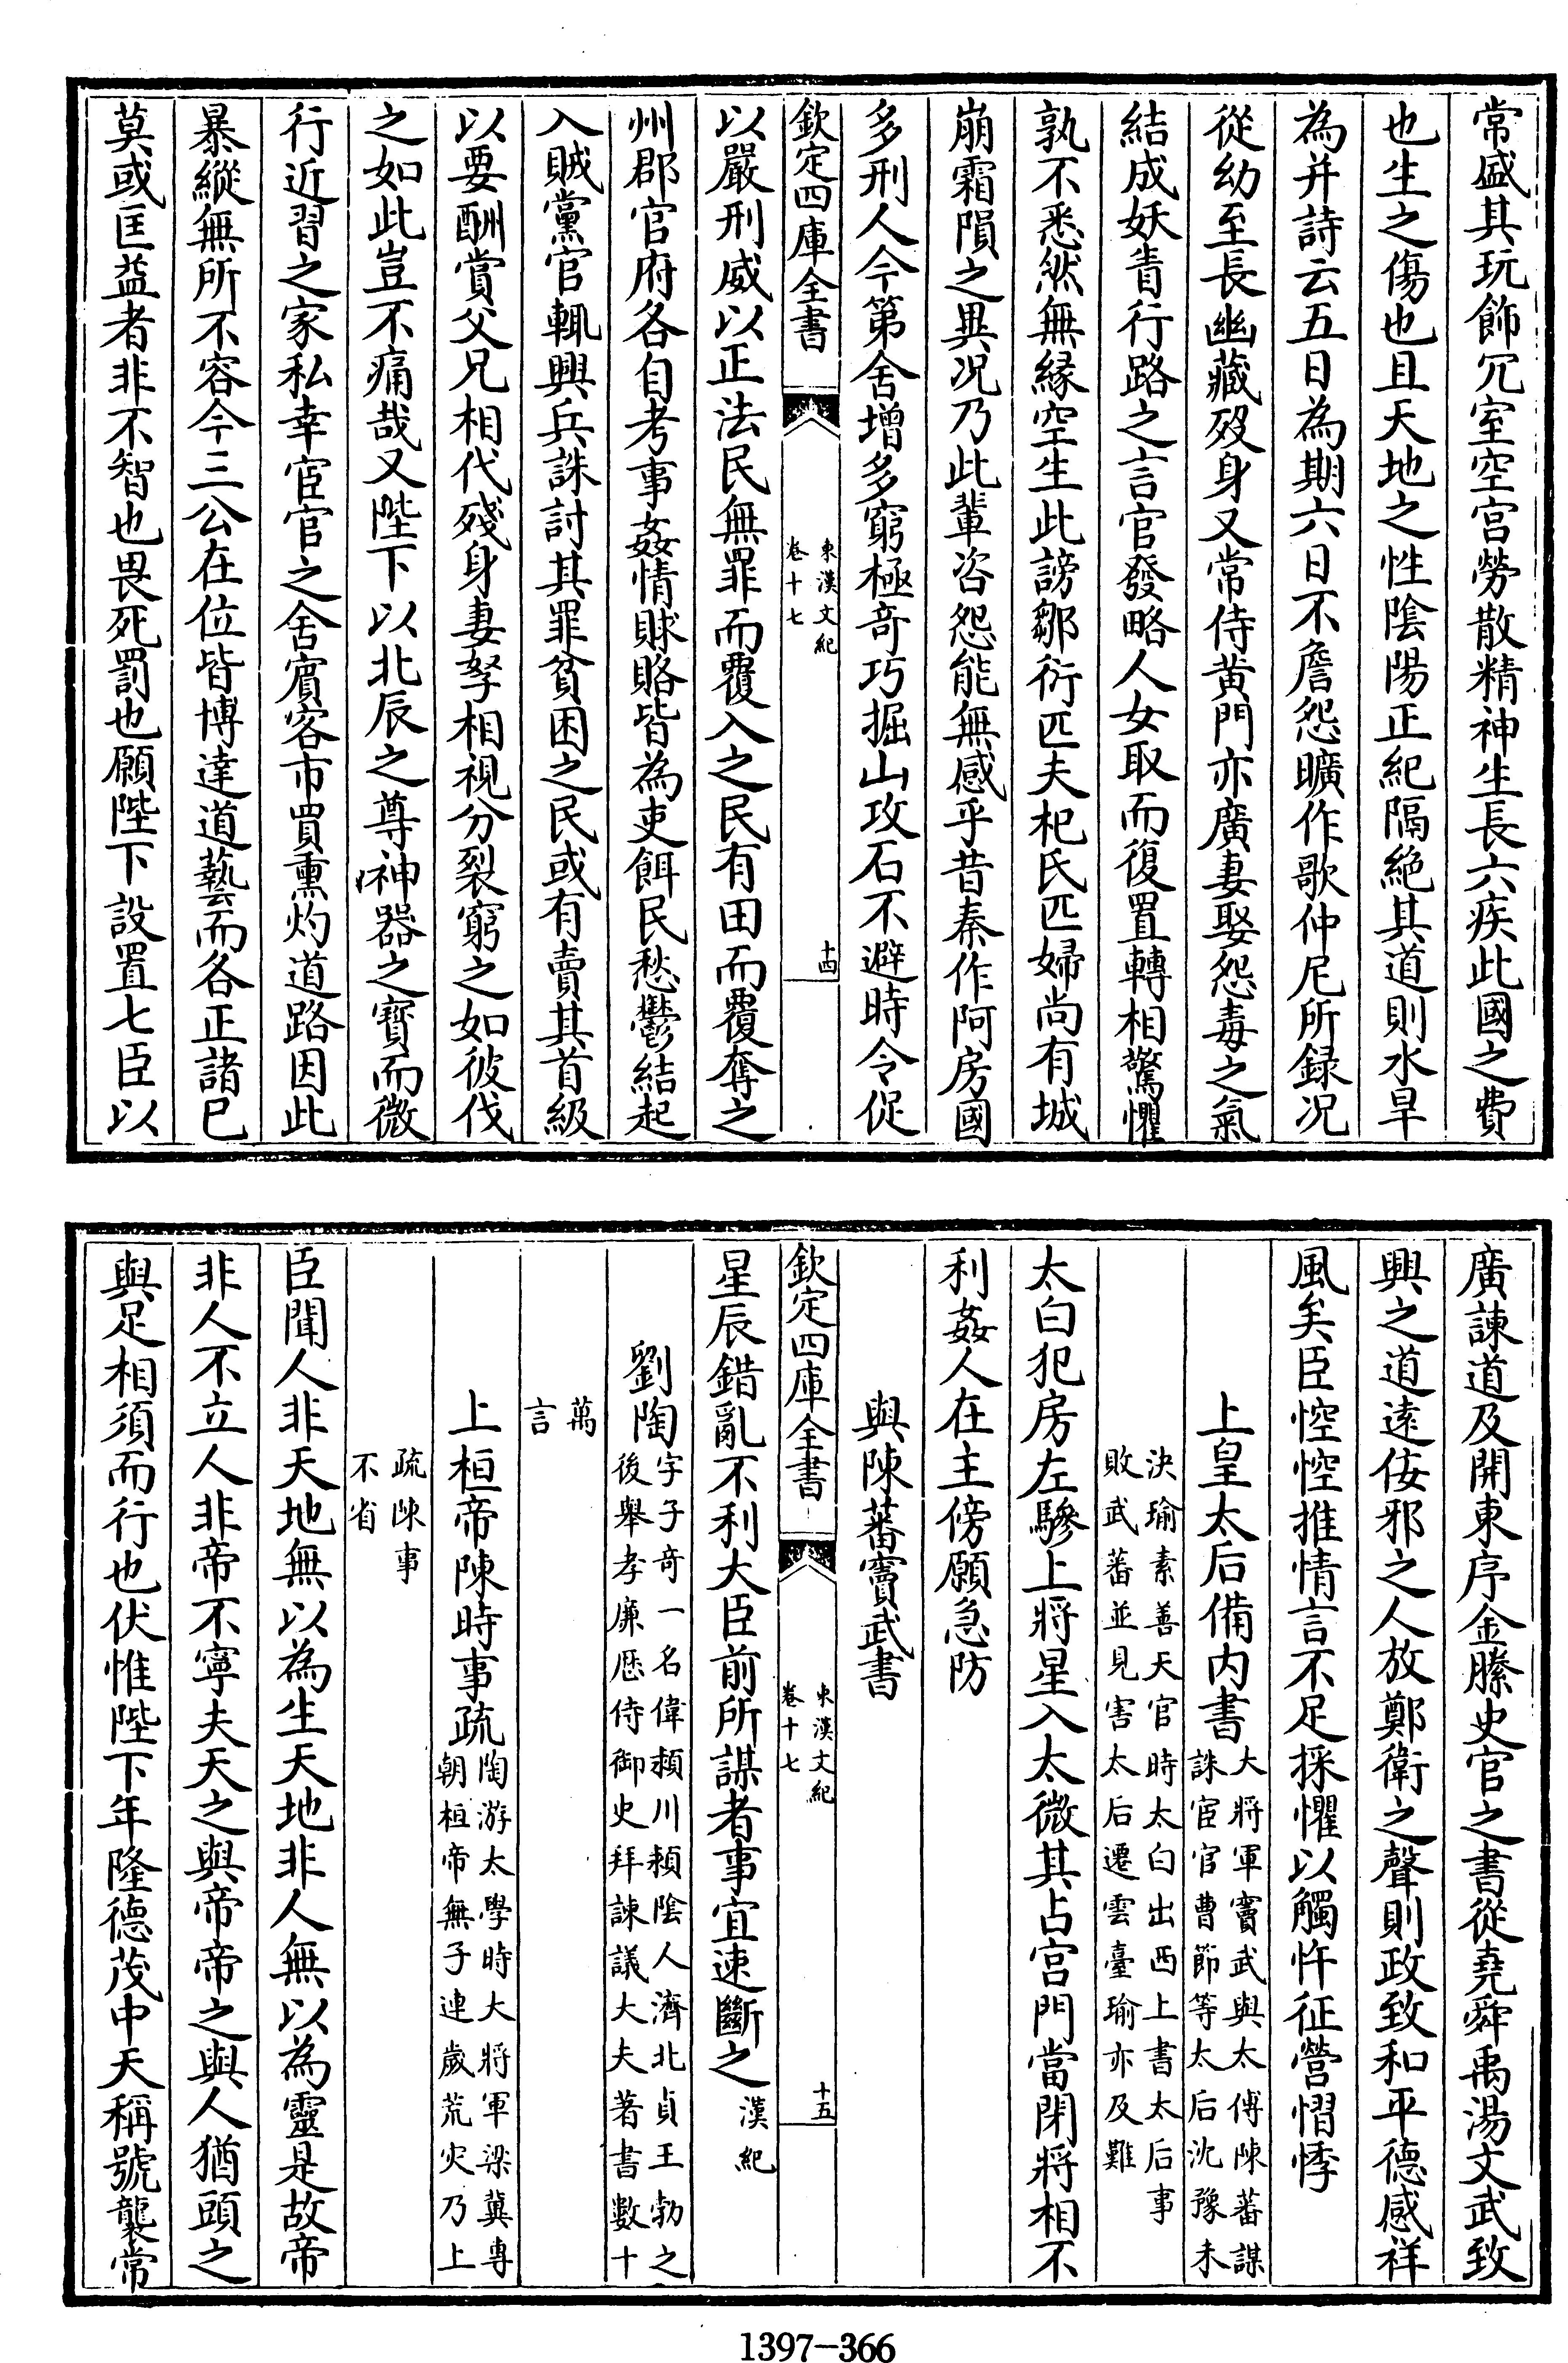 常盛其玩飾冗室空宫勞散精神生長六疾此國之費
也生之傷也且天地之性陰陽正紀隔絶其道則水旱
為并詩云五日為期六日不詹怨曠作歌仲尼所録况
從幼至長幽藏歿身又常侍黄門亦廣妻娶怨毒之氣
結成妖眚行路之言官發略人女取而復置轉相驚懼
孰不悉然無縁空生此謗鄒衍匹夫杞氏匹婦尚有城
崩霜隕之異况乃此輩咨怨能無感乎昔秦作阿房國
多刑人今第舍增多窮極奇巧掘山攻石不避時令促
欽定四庫全書
東漢文紀
卷十七
十四
以嚴刑威以正法民無罪而覆入之民有田而覆奪之
州郡官府各自考事姦情賕賂皆為吏餌民愁鬱結起
入賊黨官輒興兵誅討其罪貧困之民或有賣其首級
以要酬賞父兄相代殘身妻孥相視分裂窮之如彼伐
之如此豈不痛哉又陛下以北辰之尊神器之寳而微
行近習之家私幸宦官之舍賔客市買熏灼道路因此
暴縱無所不容今三公在位皆博達道藝而各正諸已
莫或匡益者非不智也畏死罰也願陛下設置七臣以
廣諫道及開東序金縢史官之書從堯舜禹湯文武致
興之道逺佞邪之人放鄭衛之聲則政致和平德感祥
風矣臣悾悾推情言不足採懼以觸忤征營慴悸
上皇太后備内書大將軍竇武與太傅陳蕃謀
誅宦官曹節等太后沈豫未
決瑜素善天官時太白出西上書太后事
敗武蕃並見害太后遷雲臺瑜亦及難
太白犯房左驂上將星入太微其占宫門當閉將相不
利姦人在主傍願急防
與陳蕃竇武書
欽定四庫全書
東漢文紀
卷十七
十五
星辰錯亂不利大臣前所謀者事宜速斷之漢紀
劉陶字子奇一名偉潁川潁陰人濟北貞王勃之
後舉孝廉歴侍御史拜諫議大夫著書數十
萬
言
上桓帝陳時事疏陶游太學時大將軍梁冀專
朝桓帝無子連歲荒灾乃上
疏陳事
不省
臣聞人非天地無以為生天地非人無以為靈是故帝
非人不立人非帝不寧夫天之與帝帝之與人猶頭之
與足相須而行也伏惟陛下年隆德茂中天稱號襲常
1397-366